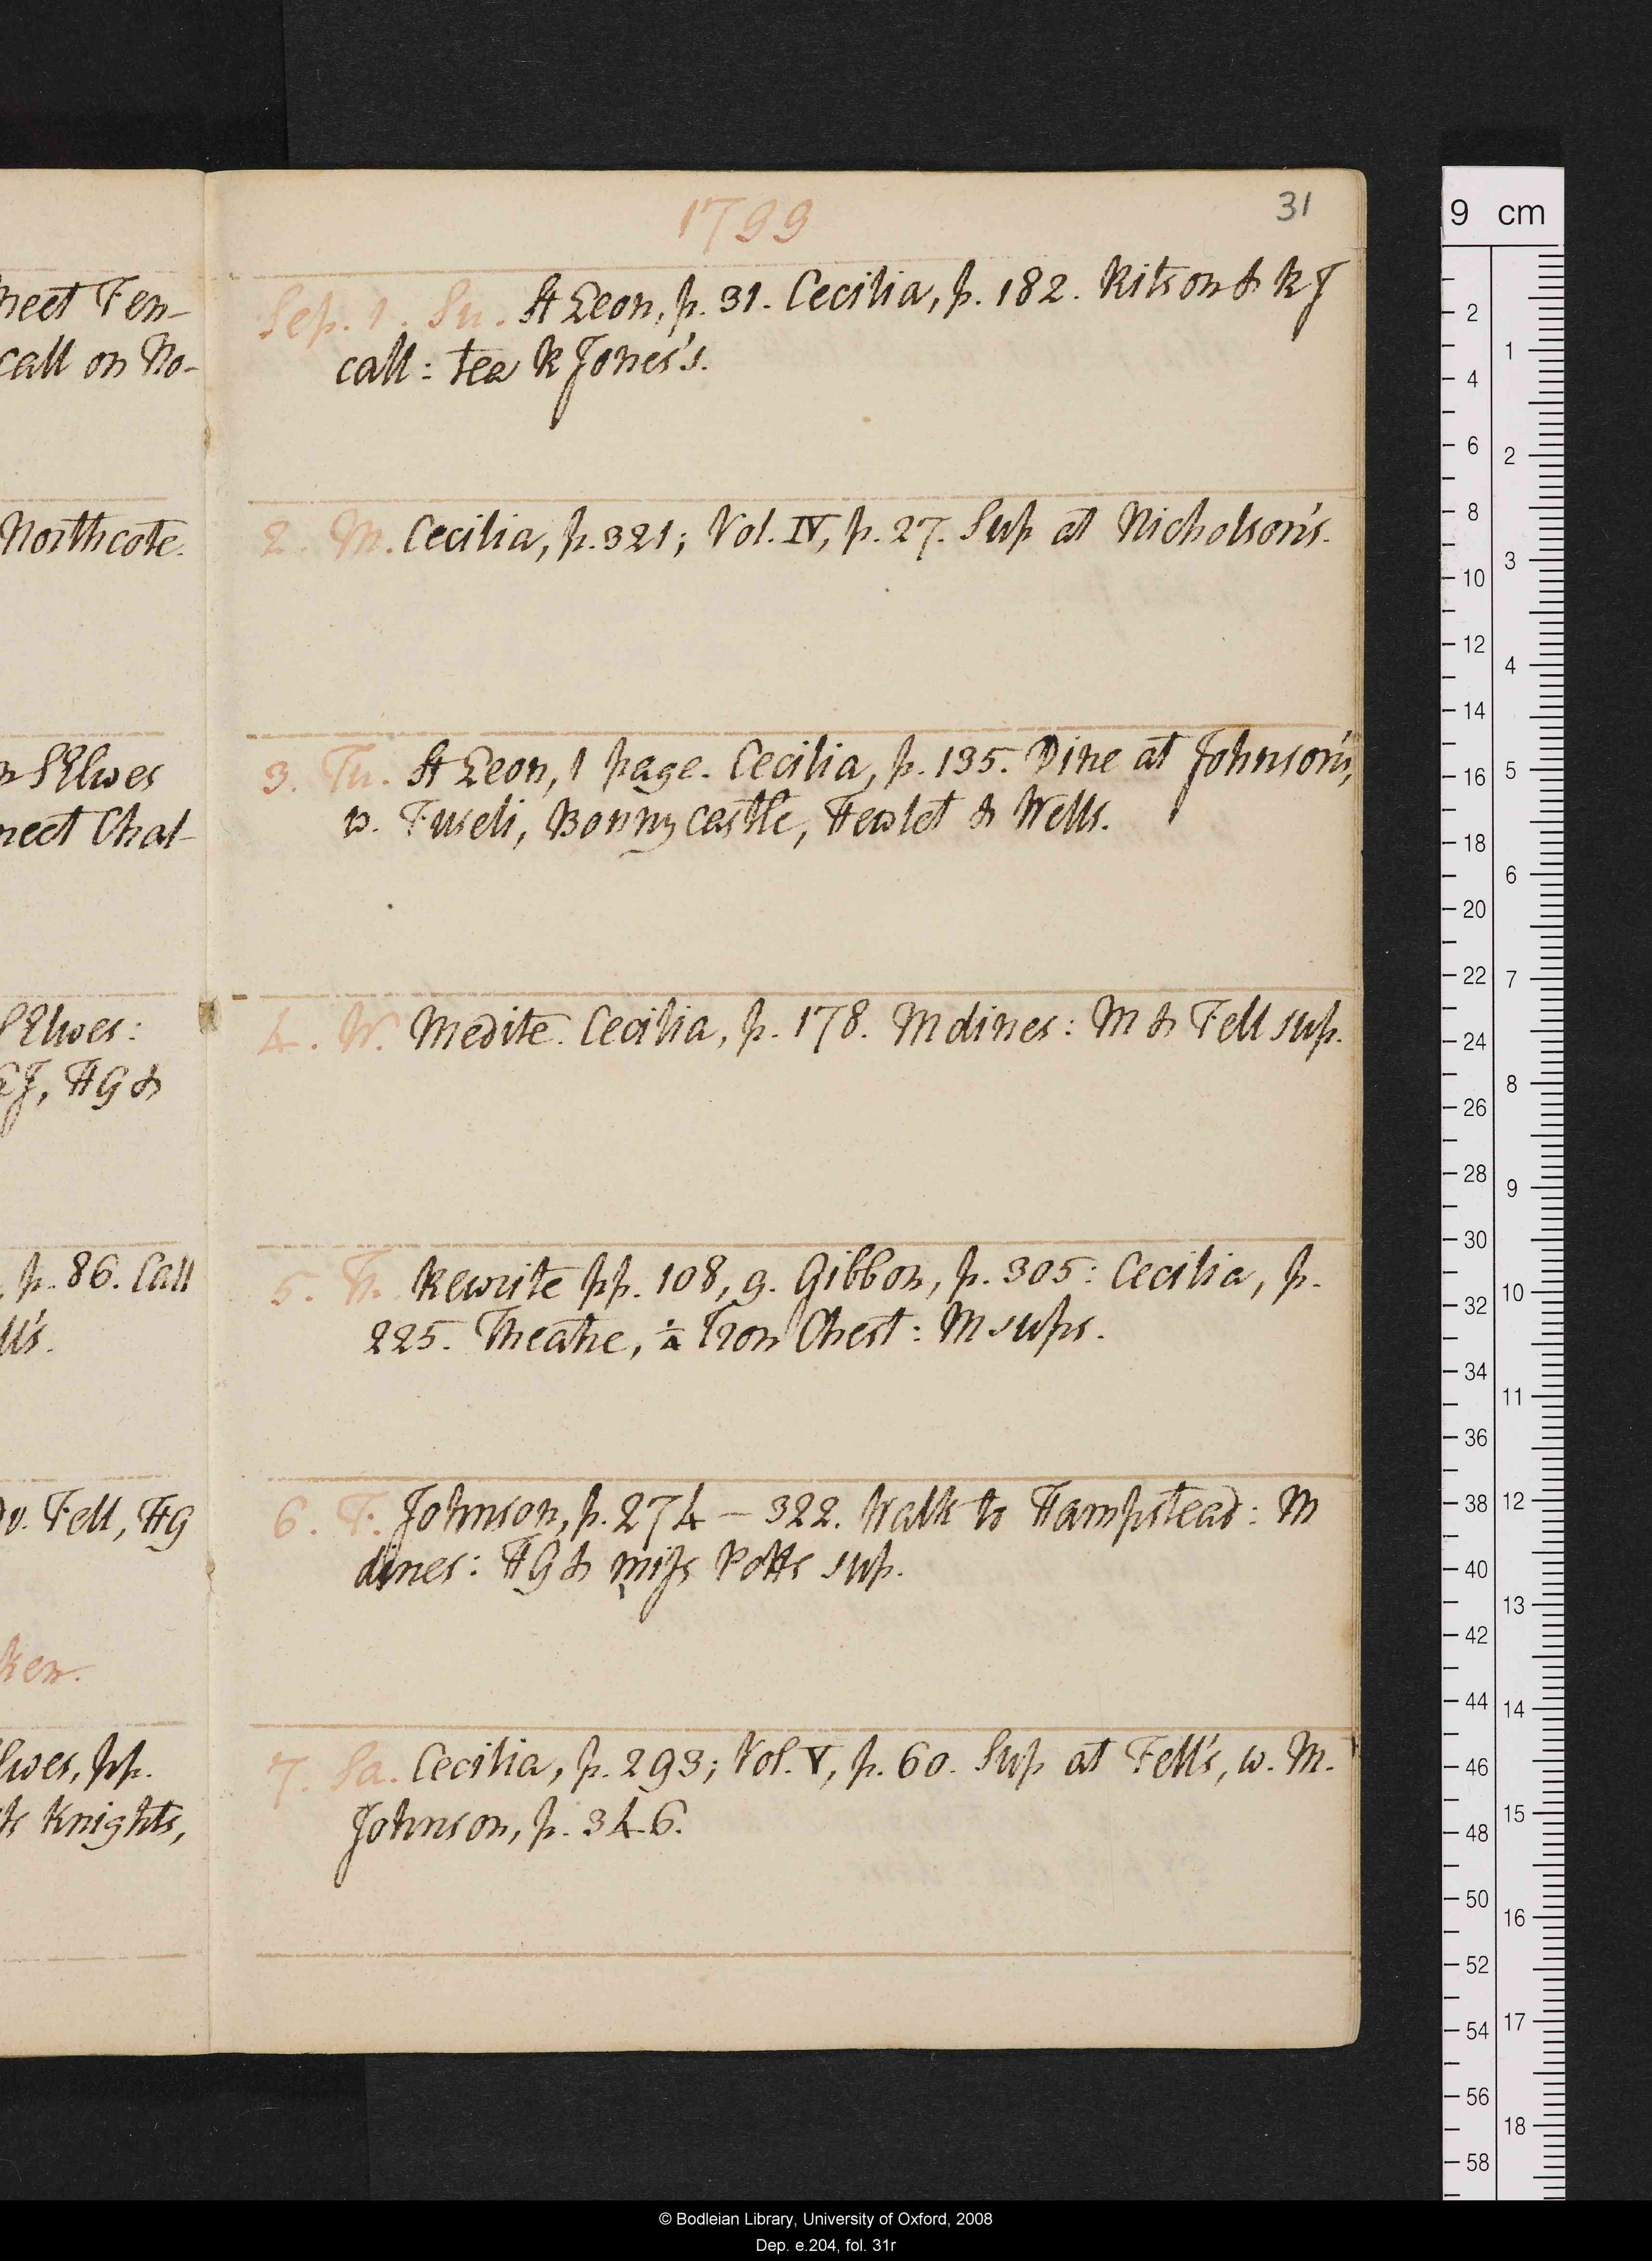 neet Fen-
call on No-
Northcote.
n P Elwes
neet Chal-
P Elwes:
EJ, HG &
, p. 86. Call
ll's.
v. Fell, HG
ken.
lwes, pp.
ts Knights,
1799
31
Sep. 1. Su. St Leon, p. 31. Cecilia, p. 182. Ritson & RJ
call: tea R Jones's.
2. M. Cecilia, p. 321; Vol. IV, p. 27. Sup at Nicholson's.
3. Tu. St Leon, 1 page. Cecilia, p. 135. Dine at Johnson's,
w. Fuseli, Bonnycastle, Hewlet & Wells.
4. W. Medite. Cecilia, p. 178. M dines: M & Fell sup.
5. Th. Rewrite pp. 108, 9. Gibbon, p. 305: Cecilia, p.
225. Theatre, ½ Iron Chest: M sups.
6. F. Johnson, p. 274 – 322. Walk to Hampstead: M
dines: HG & miss Potts sup.
7. Sa. Cecilia, p. 293; Vol. V, p. 60. Sup at Fell's, w. M.
Johnson, p. 346.
9 cm
2
4
6
8
10
12
14
16
18
20
22
24
26
28
30
32
34
36
38
40
42
44
46
48
50
52
54
56
58
1
2
3
4
5
6
7
8
9
10
11
12
13
14
15
16
17
18
© Bodleian Library, University of Oxford, 2008
Dep. e.204, fol. 31r